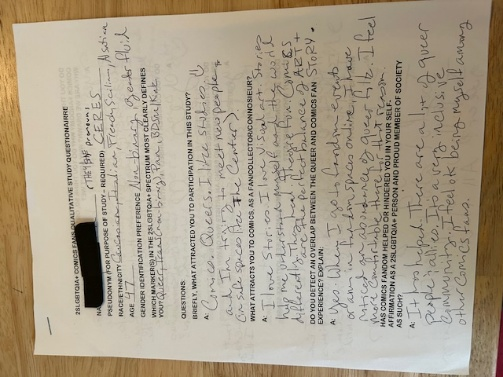 2SLGBTQIA+ COMICS FAN QUALITATIVE STUDY QUESTIONNAIRE
(they/he pronouns)
PSEUDONYM (FOR PURPOSE OF STUDY - REQUIRED) CERES
RACE/ETHNICITY Caucasian, Italian, French, Sicilian,
AGE 47
GENDER IDENTIFICATION PREFERENCE Non binary, agender, fluid
WHICH MARKER(S) IN THE 2SLGBTQIA+ SPECTRUM MOST CLEARLY DEFINES
YOU? Queer, trans,
QUESTIONS
BRIEFLY, WHAT ATTRACTED YOU TO PARTICIPATION IN THIS STUDY?
A: Comics. Queers. I like studies, &
and I'm trying to meet new people
in safe spaces (like The Center)
WHAT ATTRACTS YOU TO COMICS, AS A FAN/COLLECTOR/CONNOSIEUR?
A: I love stories. I love visual art. Stories
help me understand myself and the world
different. Comics
are the perfect balance of ART +
STORY.
DO YOU DETECT AN OVERLAP BETWEEN THE QUEER AND COMICS FAN
EXPERIENCE? EXPLAIN.
A: yes. When I go to fandom events
or am in fandom spaces online, I have
more queer folk. I feel
more comfortable there
HAS COMICS FANDOM HELPED OR HINDERED YOU IN YOUR SELF-
AFFIRMATION AS A 2SLGBTQIA+ PERSON AND PROUD MEMBER OF SOCIETY
AS SUCH?
A: It has helped. There are a lot of queer
people, allies. It's a very inclusive
community. I feel ok being myself among
other comics fans.